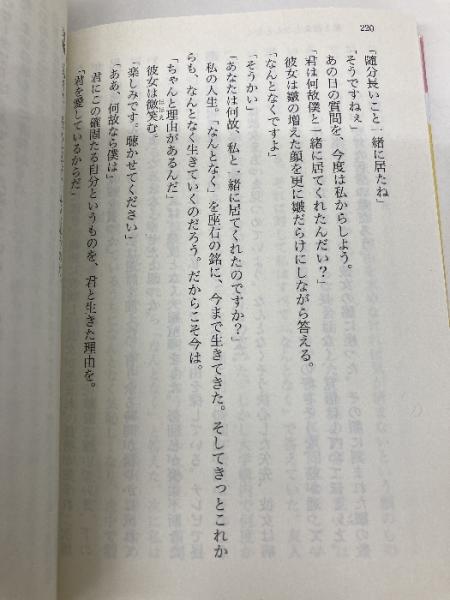 220
「随分長いこと一緒に居たね」
「そうですねぇ」
あの日の質問を、今度は私からしよう。
「君は何故僕と一緒に居てくれたんだい?」
彼女は皺の増えた顔を更に皺だらけにしながら答える。
「なんとなくですよ」
「そうかい」
「あなたは何故、私と一緒に居てくれたのですか?」
私の人生。「なんとなく」を座右の銘に、今まで生きてきた。そしてきっとこれか
らも、なんとなく生きていくのだろう。だからこそ今は。
「ちゃんと理由があるんだ」
彼女は微笑む。
「楽しみです。聴かせてください」
「ああ、何故なら僕は」
君にこの確固たる自分というものを、君と生きた理由を。
「君を愛しているからだ」